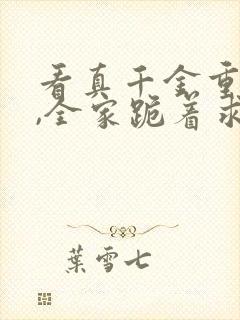 看真千金重
,全家跪着求
葉雪七